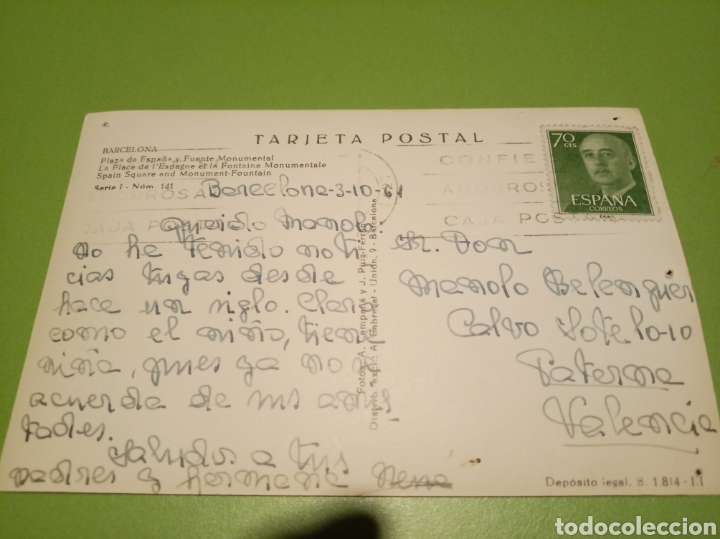 BARCELONA
Plaza de España y Fuente Monumental
La Place de l'Espagne et la Fontaine Monumentale
Spain Square and Monument-Fountain
Serie I - Núm. 141
TARJETA POSTAL
CONFIE
AHORROS
CAJA POSTAL
70
CTS
ESPAÑA
CORREOS
Barcelona-3-10-61
Querido Manolo:
no he tenido noti
cias tuyas desde
hace un siglo. Claro
como el niño, tiene
niña, pues ya no se
acuerda de sus amis
tades.
Saludos a tus
padres y hermana
Fotos A. Campañá y J. Puig-Ferrán
Unión, 9 - Barcelona
Sr. Don
Manolo Belenguer
Calvo Sotelo-10
Paterna
Valencia
Depósito legal. B. 1.814-
todocoleccion